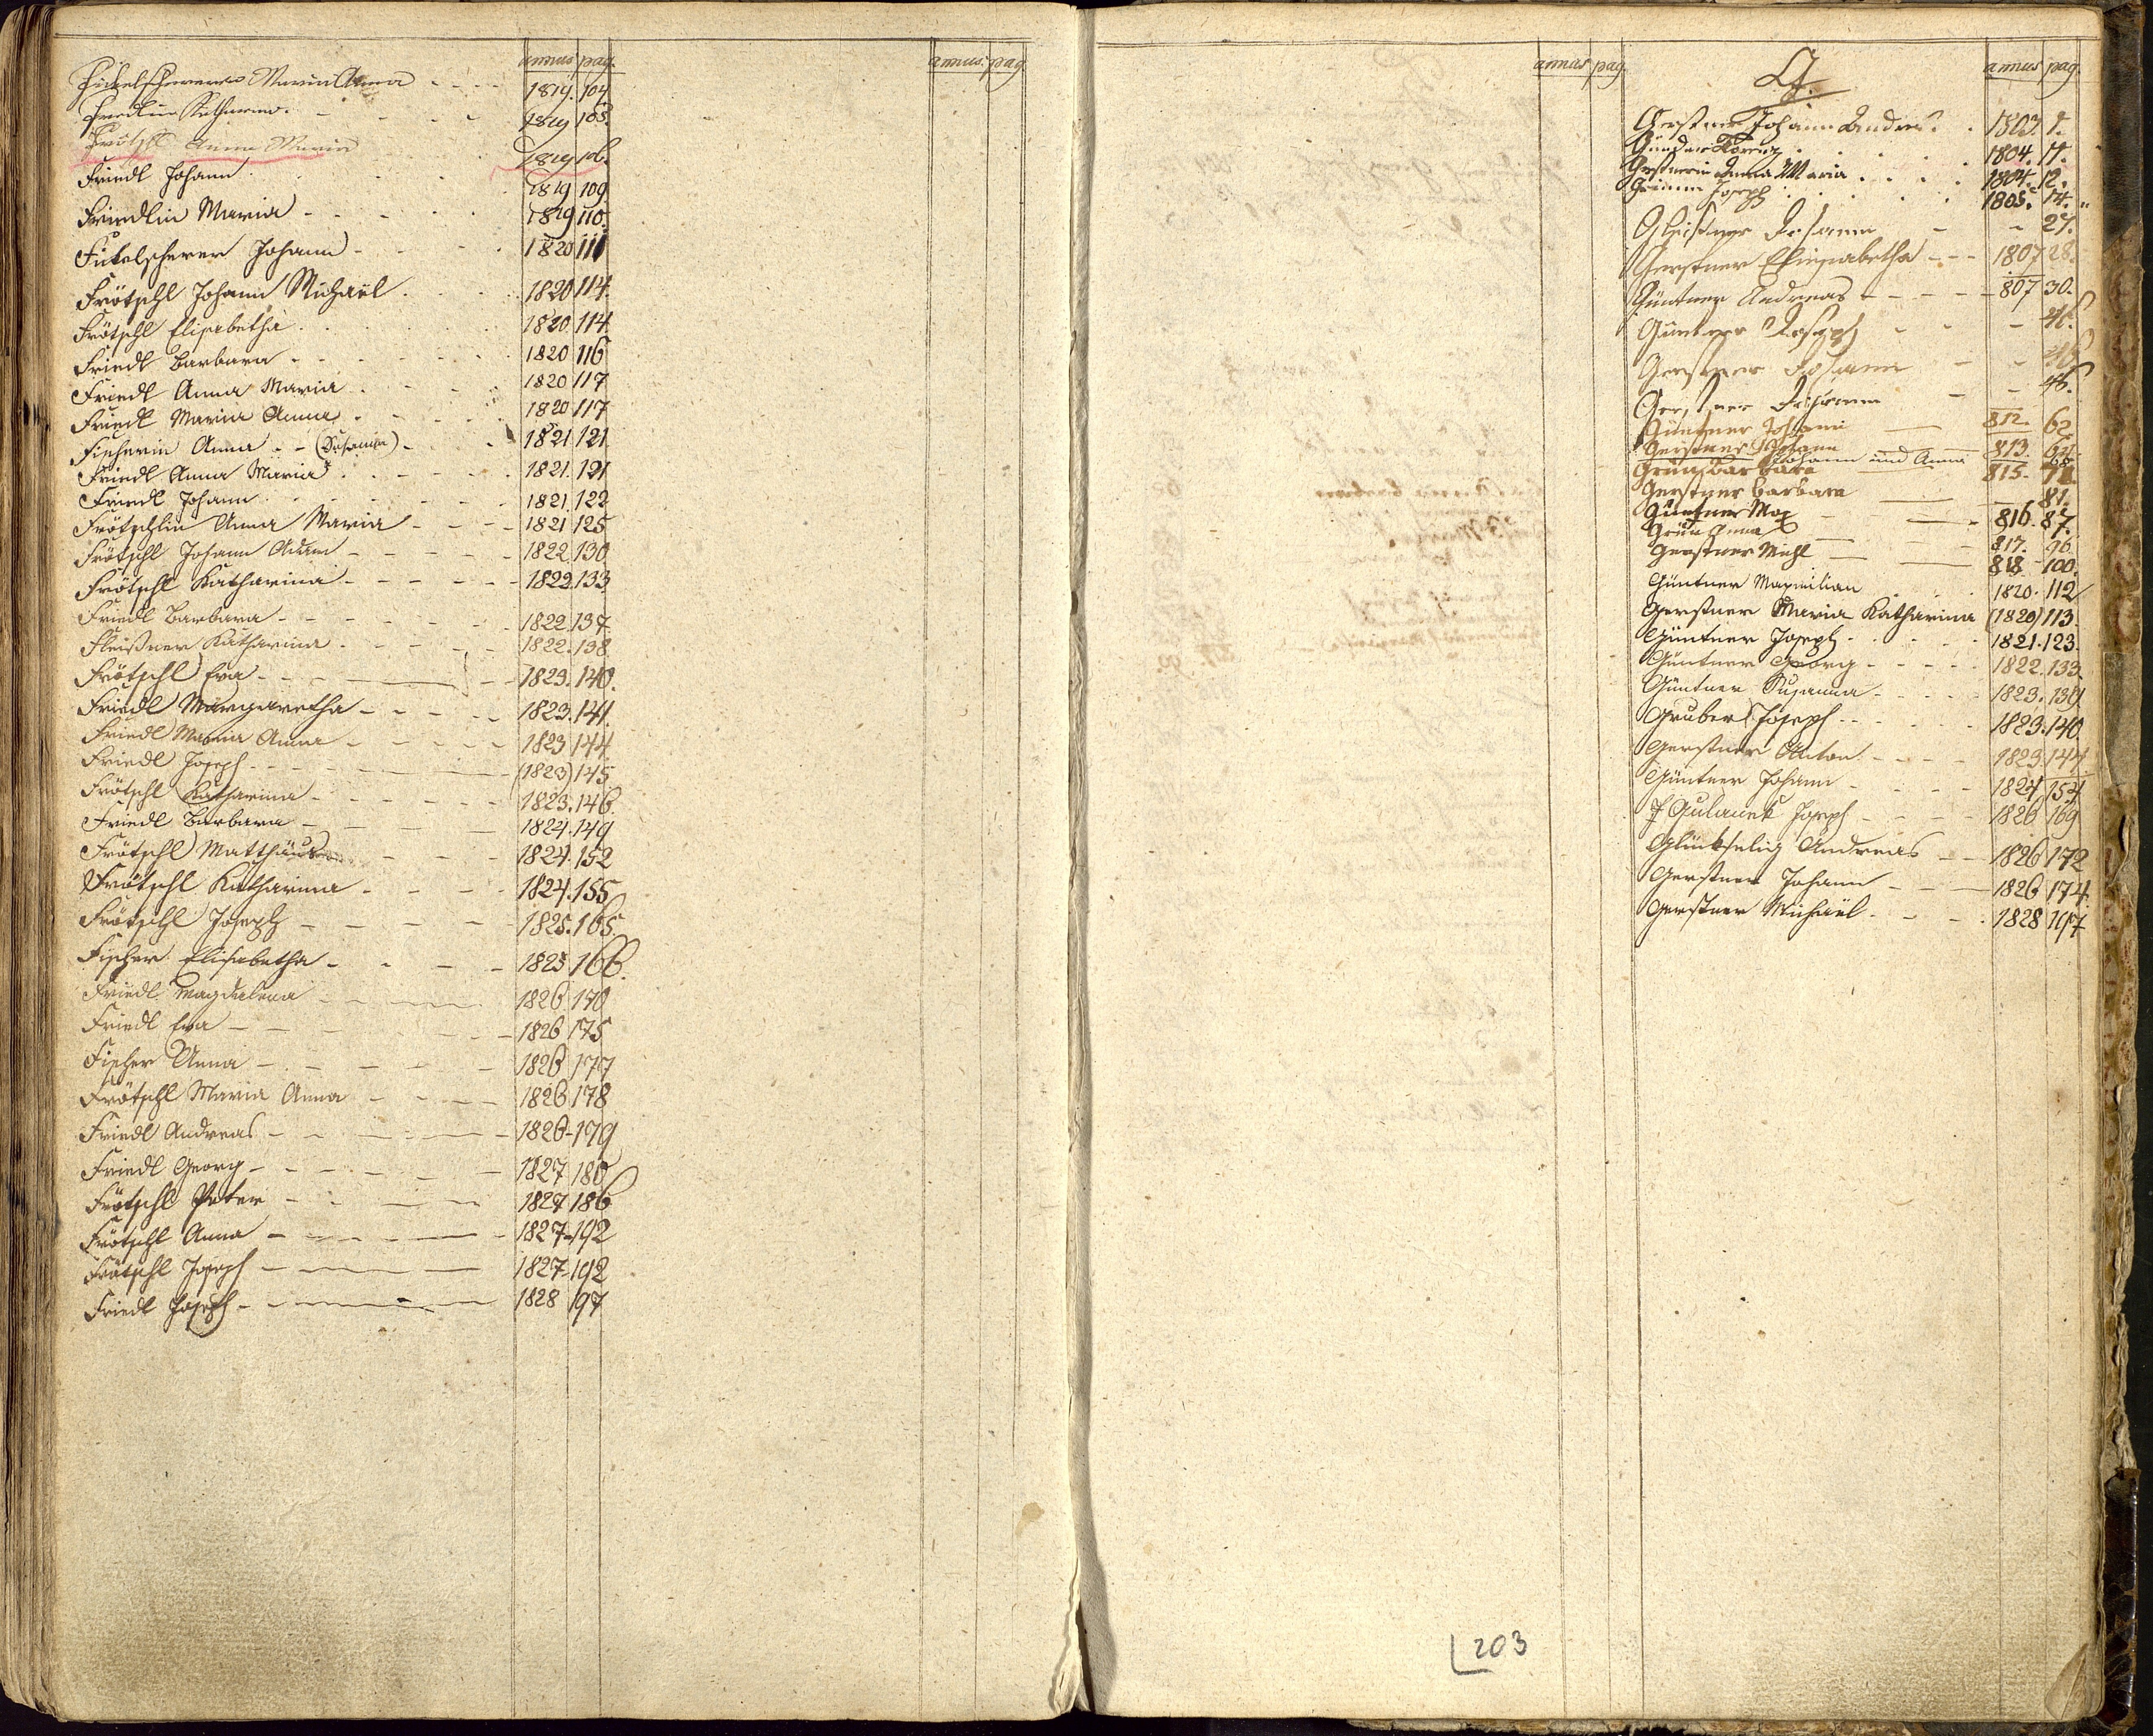 annus pag. annus. pag.
Fickelscherer Maria Anna - - - 1819. 104
Friedlin Katharina. - - - 1819 105.
Frötschl Anna Maria 1819 106.
Friedl Johann. 1819 109.
Friedlin Maria - - - 1819 110.
Fickelscherer Johann - - 1820 111
Frötschl Johann Michaël. 1820 114.
Frötschl Elisabetha. 1820. 114.
Friedl Barbara - 1820 116
Friedl Anna Maria. 1820 117
Friedl Maria Anna. 1820 117
Fischerin Anna - - (Susanna) - 1821. 121
Friedl Anna Maria. 1821. 121
Friedl Johann. 1821. 122
Frötschlin Anna Maria - - - 1821 125
Frötschl Johann Adam - - - - 1822 130
Frötschl Katharina - - - - - 1822. 133
Friedl Barbara - - - - 1822. 137
Fleißner Katharina. - - - 1822. 138
Frötschl Eva - - - 1823. 140.
Friedl Margaretha - - - - 1823. 141.
Friedl Maria Anna - - - - 1823 144.
Friedl Joseph - - - - (1823) 145
Frötschl Katharina - - - - 1823. 146.
Friedl Barbara - - - 1824. 149
Frötschl Matthäus - - - 1824. 152
Frötschl Katharina - - - - 1824. 155
Frötschl Joseph - - - - 1825. 165.
Fischer Elisabetha - - - - 1825 166.
Friedl Magdalena - - - 1826. 170
Friedl Eva - - - - 1826 175
Fischer Anna - - - - - 1826 177
Frötschl Maria Anna - - - - 1826 178
Friedl Andreas - - - - 1826 - 179
Friedl Georg - - - - - 1827 180
Frötschl Peter - - - - 1827 186
Frötschl Anna - - - - 1827 - 192
Frötschl Joseph - - - - 1827 - 192
Friedl Joseph - - - - 1828 197
annus pag.
G. annus pag.
Gerstner Johann Andreas. 1803. 7.
Lorenz. 1804. 11.
Gerstnerin Anna Maria. 1804. 12.
Joseph 1805. 14. "
Johann - - 27.
Gerstner Elisabetha - - - 1807 28.
Güntner Andreas - - - - 807 30.
Güntner Joseph - - - 41.
Gerstner Johann - - 46
Gerstner Johann - - 46.
Güntner Johann — 812. 62
Gerstner Johann 813. 64
Johann und Anna 68
Grün Barbara 815. 72.
Gerstner Barbara — 81.
Güntner Max — - 816. 87.
Grün Anna — - 817. 96
Gerstner Michl — — 818 - 100.
Güntner Maximilian 1820. 112
Gerstner Maria Katharina (1820) 113.
Güntner Joseph. 1821. 123.
Güntner Georg - - - - 1822. 133.
Güntner Susanna - - - 1823. 139.
Gruber Joseph - - - 1823. 140.
Gerstner Anton - - - - 1823. 144.
Güntner Johann - - - 1824 154
Joseph - - - 1826 169
Glückselig Andreas - - 1826 172
Gerstner Johann - - - 1826 174.
Gerstner Michaël - - - 1828 197
203